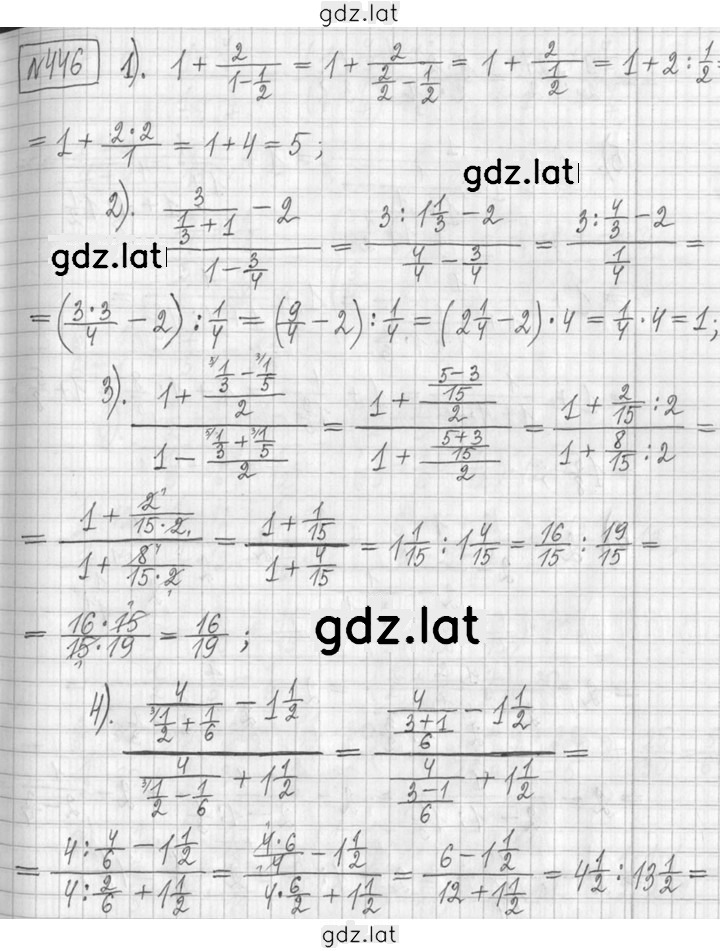 gdz.lat
№446 1). 1 + 2/(1 - 1/2) = 1 + 2/(2/2 - 1/2) = 1 + 2/(1/2) = 1 + 2 : 1/2 =
= 1 + (2·2)/1 = 1 + 4 = 5 ;
gdz.lat
2). (3/(1/3 + 1) - 2)/(1 - 3/4) = (3 : 1 1/3 - 2)/(4/4 - 3/4) = (3 : 4/3 - 2)/(1/4) =
gdz.lat
= ((3·3)/4 - 2) : 1/4 = (9/4 - 2) : 1/4 = (2 1/4 - 2) · 4 = 1/4 · 4 = 1 ;
3). (1 + (⁵⁾1/3 - ³⁾1/5)/2)/(1 - (⁵⁾1/3 + ³⁾1/5)/2) = (1 + ((5-3)/15)/2)/(1 + ((5+3)/15)/2) = (1 + 2/15 : 2)/(1 + 8/15 : 2) =
= (1 + 2/(15·2))/(1 + 8/(15·2)) = (1 + 1/15)/(1 + 4/15) = 1 1/15 : 1 4/15 = 16/15 : 19/15 =
= (16·15)/(15·19) = 16/19 ;
gdz.lat
4). (4/(³⁾1/2 + 1/6) - 1 1/2)/(4/(³⁾1/2 - 1/6) + 1 1/2) = (4/((3+1)/6) - 1 1/2)/(4/((3-1)/6) + 1 1/2) =
= (4 : 4/6 - 1 1/2)/(4 : 2/6 + 1 1/2) = ((4·6)/4 - 1 1/2)/(4 · 6/2 + 1 1/2) = (6 - 1 1/2)/(12 + 1 1/2) = 4 1/2 : 13 1/2 =
gdz.lat